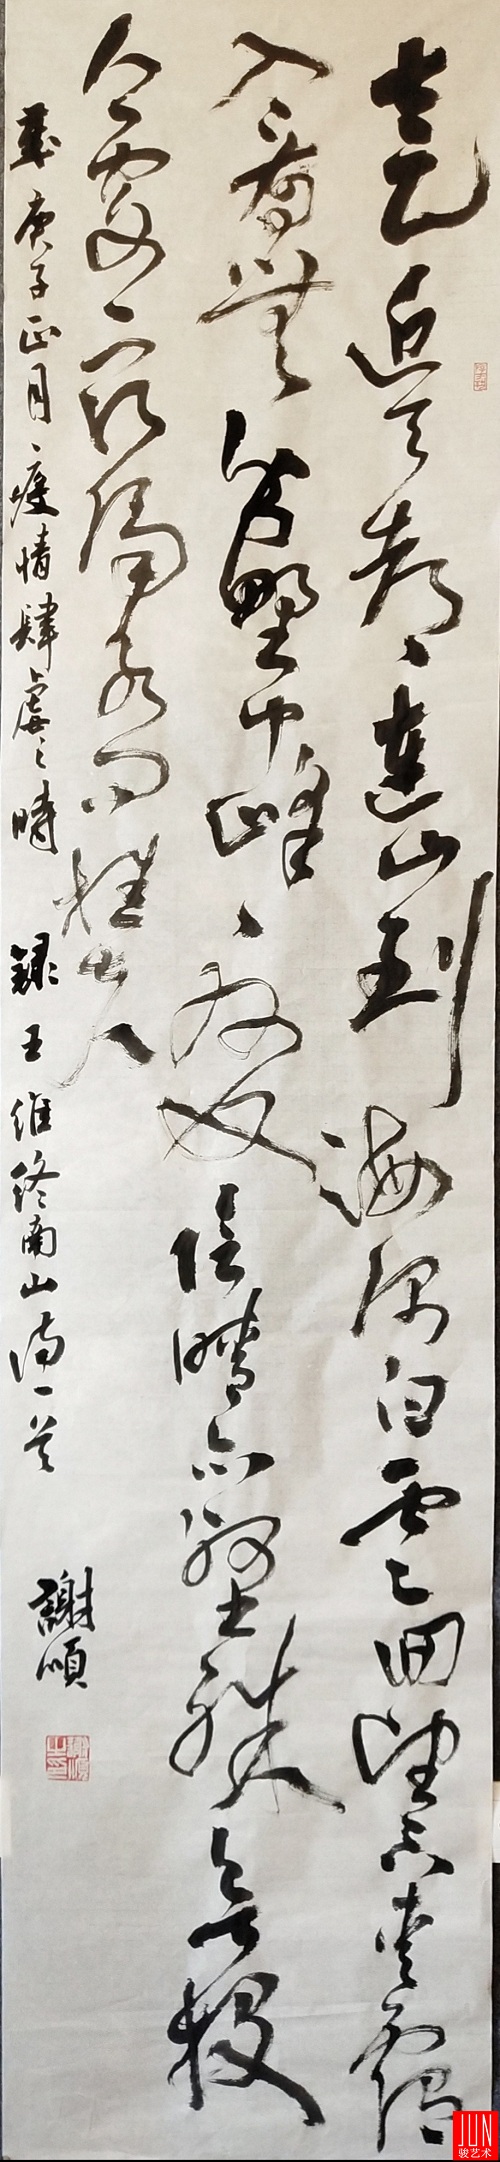 太乙近天都連山到海隅白雲回望合青靄
入看無分野中峰變陰晴眾壑殊欲投
人處宿隔水問樵夫
歲庚子正月疫情肆虐之時錄王維終南山詩一首
謝順
JUN
骏艺术